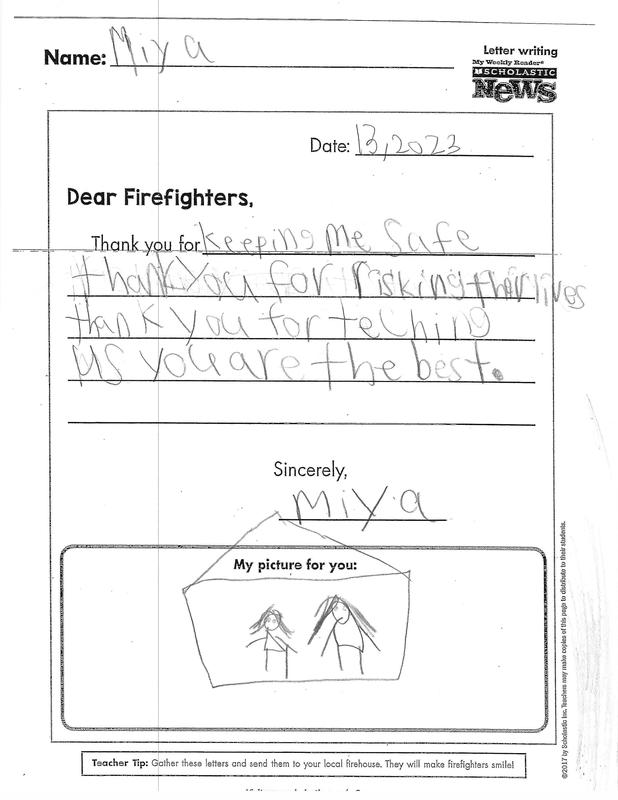 Letter writing
Name: Miya
My Weekly Reader®
SCHOLASTIC
News
Date: 13,2023
Dear Firefighters,
Thank you for keeping me safe
thank you for risking thir lives
thank you for teching
us you are the best.
Sincerely,
Miya
My picture for you:
Teacher Tip: Gather these letters and send them to your local firehouse. They will make firefighters smile!
©2017 by Scholastic Inc. Teachers may make copies of this page to distribute to their students.